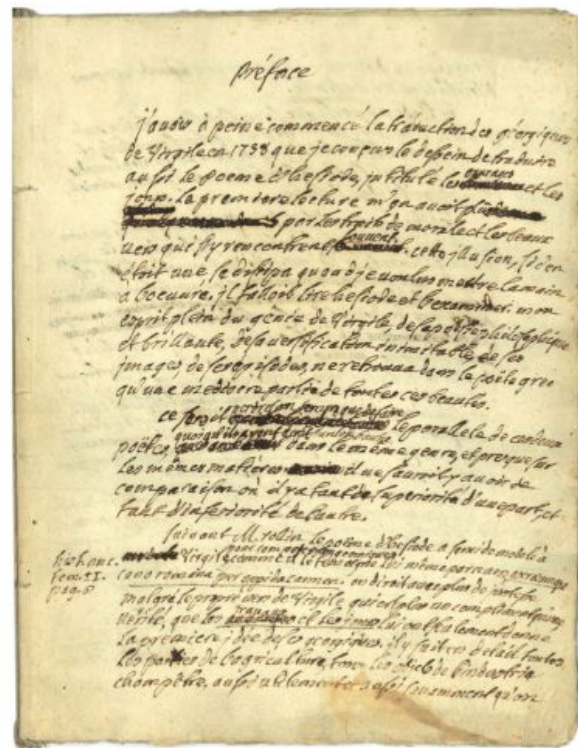 préface
j'avois à peine commencé la traduction des géorgiques
de Virgile en 1738 que je conçus le dessein de traduire
aussi le poeme d'hesiode, intitulé les travaux et les
jours. La premiere lecture m'en avoit
par les traits de morale et les beaux
vers qui s'y rencontrent souvent. cette illusion, si c'en
étoit une se dissipa quand je voulus mettre la main
a l'oeuvre. il falloit lire hesiode et l'examiner. mon
esprit plein du genie de Virgile, de sa poësie philosophique
et brillante, de sa versification inimitable, de ses
images, de ses episodes, ne retrouva dans le poëte grec
qu'une mediocre partie de toutes ces beautes.
ce seroit perdre son tems que de faire le parallele de ces deux
poëtes, quoiqu'ils ayent écrit dans le même genre, et presque sur
les mêmes matieres. il ne sauroit y avoir de
comparaison où il y a tant de superiorité d'une part, et
tant d'inferiorité de l'autre.
suivant M. rollin, le poëme d'hesiode a servi de modele à
hist. anc. Virgile pour composer ses georgiques, comme il le temoigne lui même par ce vers, ascraeumque
tom. 12. cano romana per oppida carmen. on diroit avec plus de
pag. 8 malgré le propre vers de Virgile, qui est plus un compliment qu'une
verité, que les travaux et les jours lui ont seulement donné
la premiere idée des georgiques. il y fait en detail toutes
les parties de l'agriculture, tous les objets de l'industrie
champêtre, aussi utilement et aussi savamment qu'on